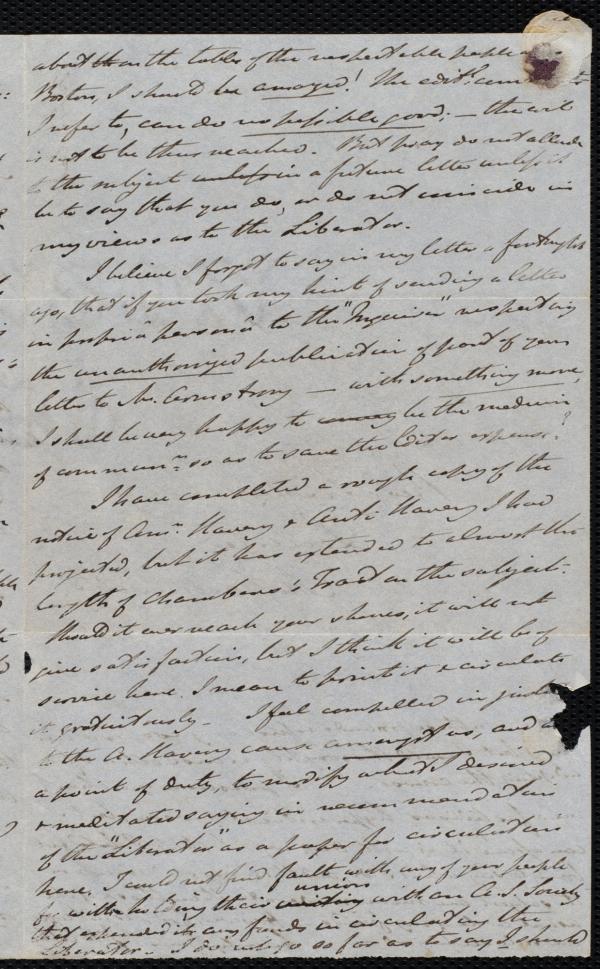 about than the tables of the respectable people
Boston, I should be amazed! The edit.l comments
I refer to, can do no possible good; — the evil
is not to be thus reached. But pray do not allude
to the subject unless in a future letter unless it
be to say that you do, or do not coincide in
my views as to the Liberator.
I believe I forgot to say in my letter a fortnight
ago, that if you took my hint of sending a letter
in propriâ personâ to the "Inquirer" respecting
the unauthorized publication of part of your
letter to Mr. Armstrong — with something more,
I shall be very happy to be the medium
of commun.n so as to save the Extra expense.
I have completed a rough copy of the
notice of Am.n Slavery & Anti Slavery I had
projected, but it has extended to almost the
length of Chambers's Tract on the subject.
Should it ever reach your shores, it will not
give satisfaction, but I think it will be of
service here. I mean to print it & circulate
it gratuitously. I feel compelled in justice
to the A. Slavery cause amongst us, and
a point of duty, to modify what I desired
& meditated saying in recommendation
of the "Liberator" as a paper for circulation
here. I could not find fault with any of your people
for withholding their union with an A. S. Society
that expended its any funds in circulating the
Liberator. I do not go so far as to say I should